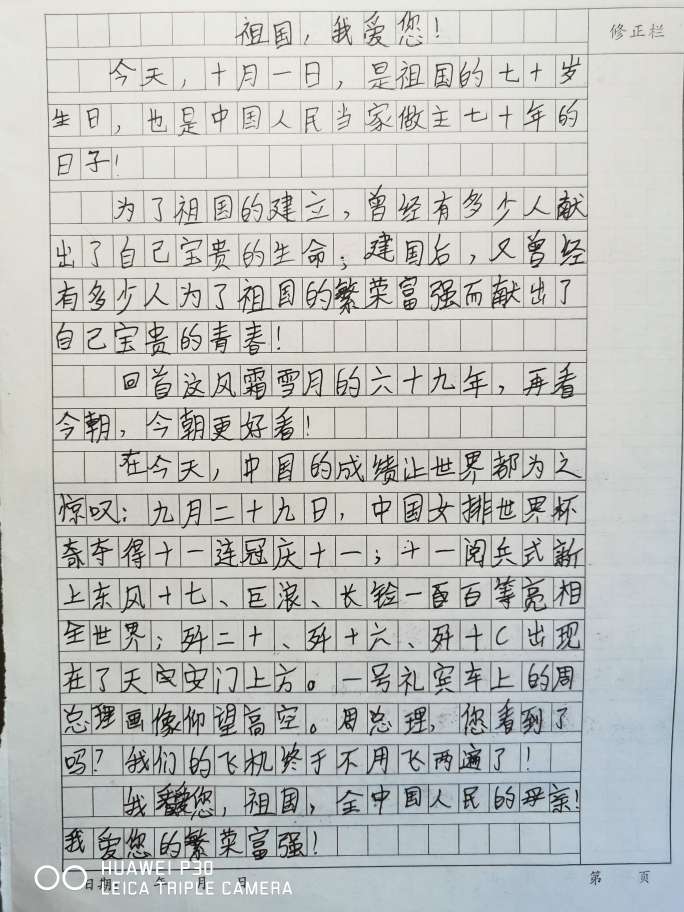 祖国，我爱您！
修正栏
今天，十月一日，是祖国的七十岁
生日，也是中国人民当家做主七十年的
日子！
为了祖国的建立，曾经有多少人献
出了自己宝贵的生命；建国后，又曾经
有多少人为了祖国的繁荣富强而献出了
自己宝贵的青春！
回首这风霜雪月的六十九年，再看
今朝，今朝更好看！
在今天，中国的成绩让世界都为之
惊叹：九月二十九日，中国女排世界杯
夺得十一连冠庆十一；十一阅兵式新
上东风十七、巨浪、长 一百 等亮相
全世界；歼二十、歼十六、歼十C出现
在了天安门上方。一号礼宾车上的周
总理画像仰望高空。周总理，您看到了
吗？我们的飞机终于不用飞两遍了！
我爱您，祖国，全中国人民的母亲！
我爱您的繁荣富强！
日期： 年 月 日
第 页
HUAWEI P30
LEICA TRIPLE CAMERA